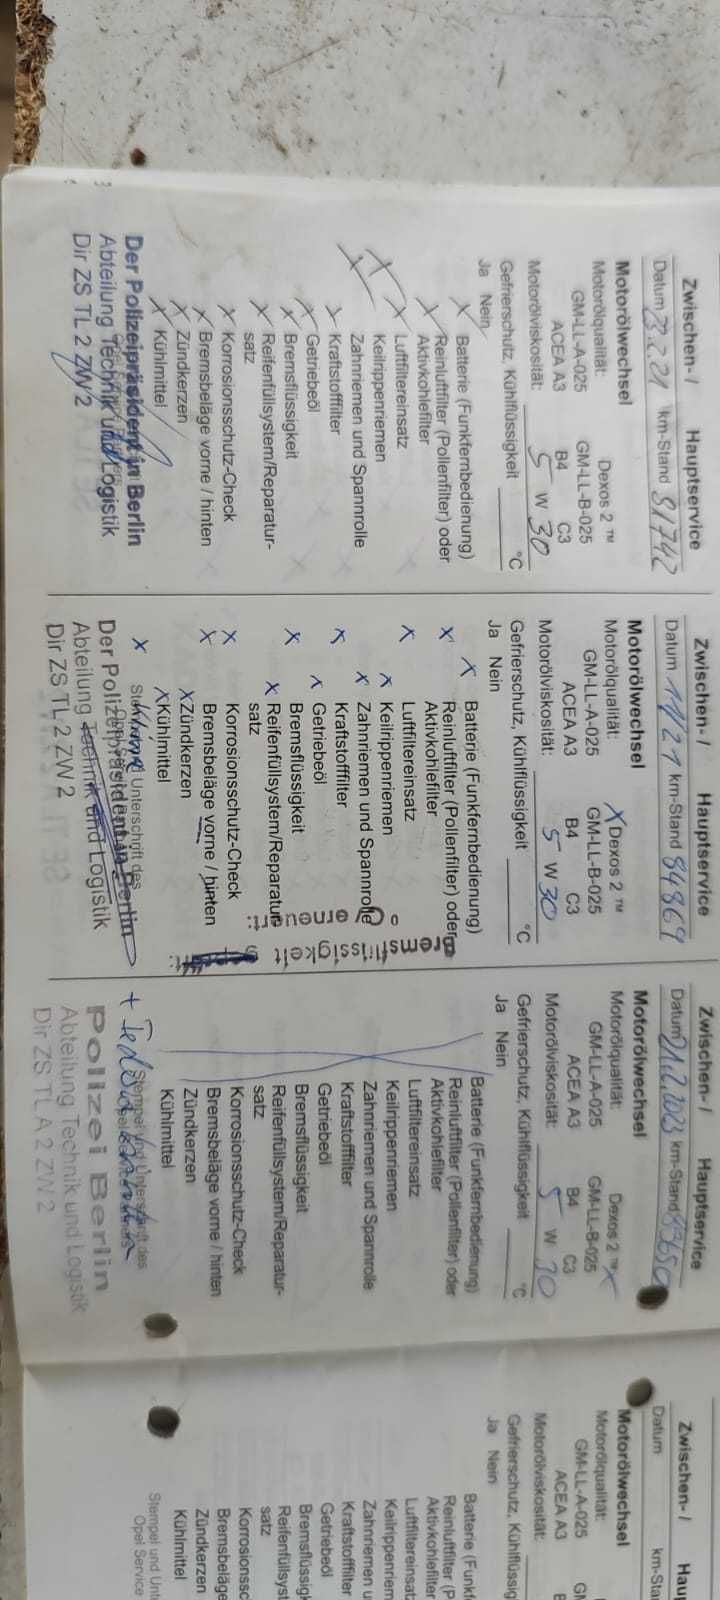 Zwischen- / Hauptservice
Datum 23.2.21 km-Stand 81742
Motorölwechsel
Motorölqualität: Dexos 2 ™
GM-LL-A-025 GM-LL-B-025
ACEA A3 B4 C3
Motorölviskosität: 5 W 30
Gefrierschutz, Kühlflüssigkeit °C
Ja Nein
X Batterie (Funkfernbedienung)
Reinluftfilter (Pollenfilter) oder
X Aktivkohlefilter
X Luftfiltereinsatz
X Keilrippenriemen
X Zahnriemen und Spannrolle
X Kraftstofffilter
X Getriebeöl
X Bremsflüssigkeit
X Reifenfüllsystem/Reparatur-
satz
X Korrosionsschutz-Check
X Bremsbeläge vorne / hinten
X Zündkerzen
X Kühlmittel
Der Polizeipräsident in Berlin
Abteilung Technik und Logistik
Dir ZS TL 2 ZW 2
Zwischen- / Hauptservice
Datum 11/21 km-Stand 84869
Motorölwechsel
Motorölqualität: X Dexos 2 ™
GM-LL-A-025 GM-LL-B-025
ACEA A3 B4 C3
Motorölviskosität: 5 W 30
Gefrierschutz, Kühlflüssigkeit °C
Ja Nein
X Batterie (Funkfernbedienung)
X Reinluftfilter (Pollenfilter) oder
Aktivkohlefilter
X Luftfiltereinsatz
X Keilrippenriemen
X Zahnriemen und Spannrolle
X Kraftstofffilter
X Getriebeöl
X Bremsflüssigkeit
X Reifenfüllsystem/Reparatur-
satz
X Korrosionsschutz-Check
X Bremsbeläge vorne / hinten
X Zündkerzen
X Kühlmittel
X Klima
Unterschrift des
Der Polizeipräsident in Berlin
Abteilung Technik und Logistik
Dir ZS TL 2 ZW 2
Bremsflüssigkeit
erneuert:
Zwischen- / Hauptservice
Datum 21.2.2023 km-Stand
Motorölwechsel
Motorölqualität: Dexos 2 ™ X
GM-LL-A-025 GM-LL-B-025
ACEA A3 B4 C3
Motorölviskosität: 5 W 30
Gefrierschutz, Kühlflüssigkeit °C
Ja Nein
Batterie (Funkfernbedienung)
Reinluftfilter (Pollenfilter) oder
Aktivkohlefilter
Luftfiltereinsatz
Keilrippenriemen
Zahnriemen und Spannrolle
Kraftstofffilter
Getriebeöl
Bremsflüssigkeit
Reifenfüllsystem/Reparatur-
satz
Korrosionsschutz-Check
Bremsbeläge vorne / hinten
Zündkerzen
Kühlmittel
Stempel und Unterschrift des
Polizei Berlin
Abteilung Technik und Logistik
Dir ZS TL A 2 ZW 2
Zwischen- /
Datum km-Stan
Motorölwechsel
Motorölqualität:
GM-LL-A-025
ACEA A3
Motorölviskosität:
Gefrierschutz, Kühlflüssig
Ja Nein
Batterie (Funkf
Reinluftfilter (P
Aktivkohlefilter
Luftfiltereinsatz
Keilrippenriem
Zahnriemen u
Kraftstofffilter
Getriebeöl
Bremsflüssigk
Reifenfüllsyst
satz
Korrosionssc
Bremsbeläge
Zündkerzen
Kühlmittel
Stempel und Unt
Opel Service